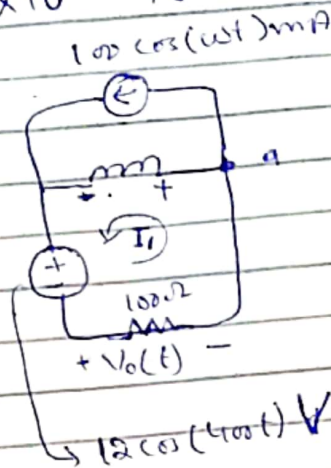 ×10
100 cos(ωt) mA
←
a
+
I₁
+
-
100Ω
+ V₀(t) -
12 cos(400t) V